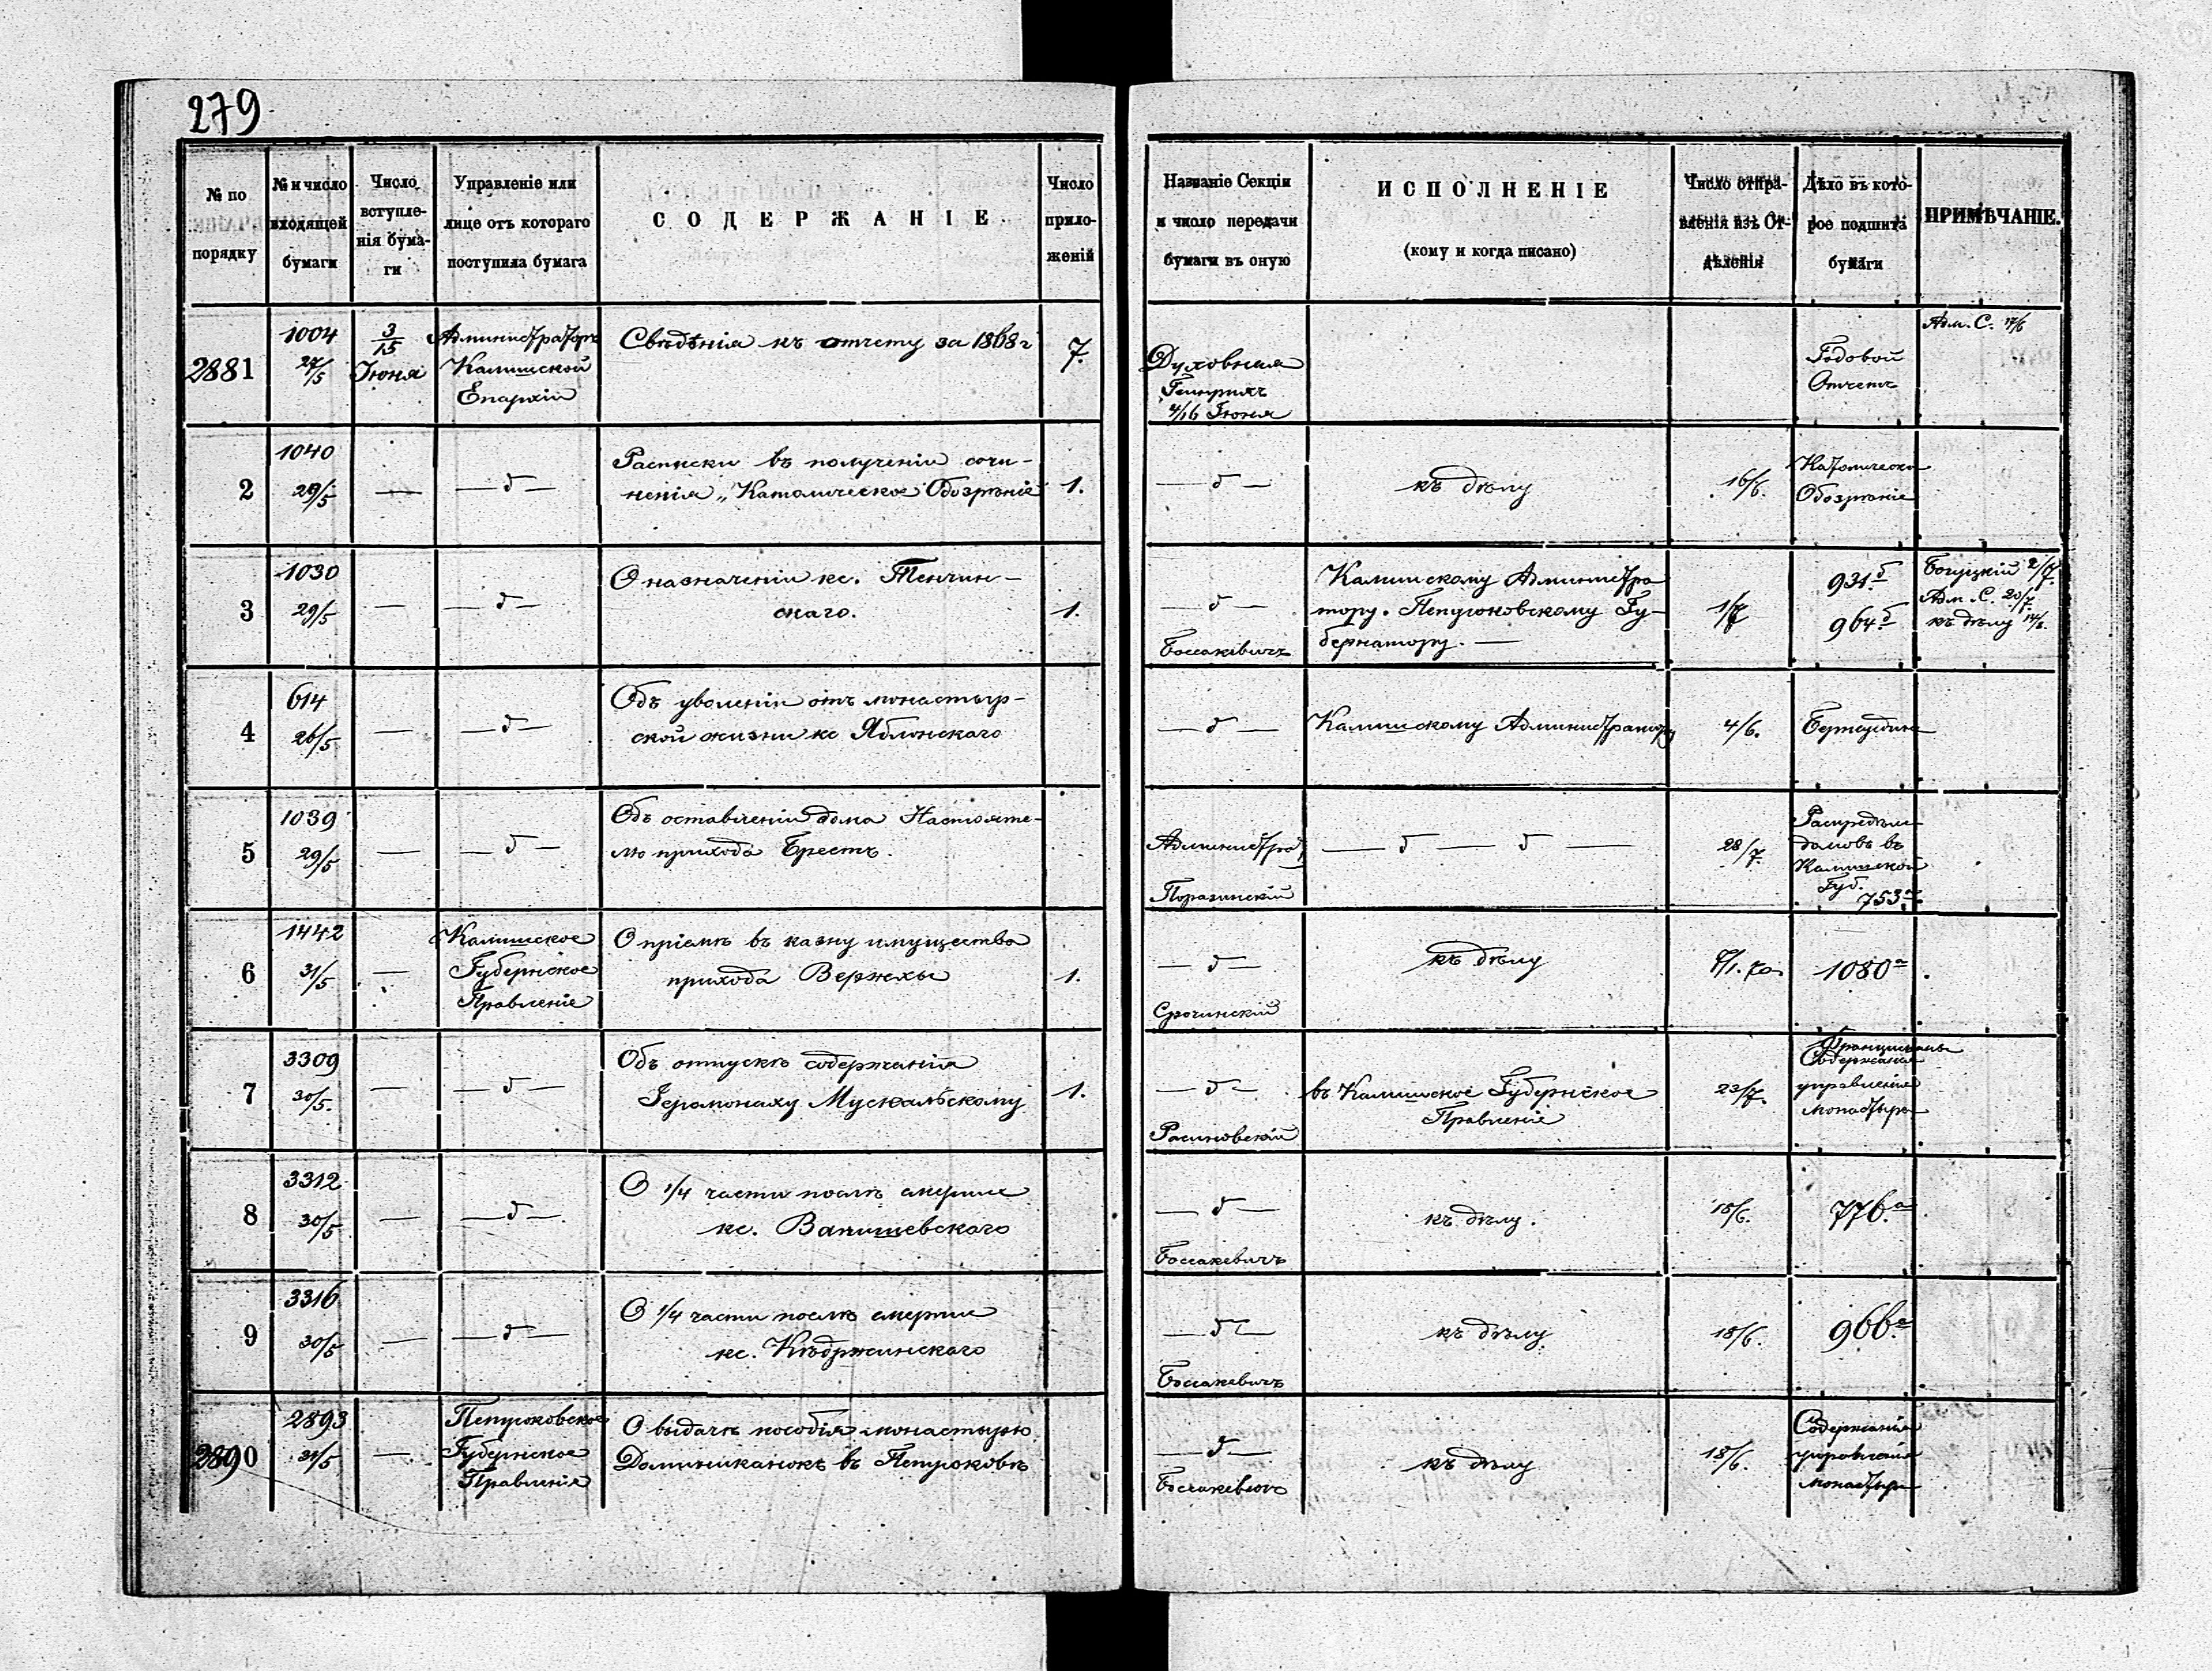 279
№ по порядку
№ и число входящей бумаги
Число вступленія бумаги
Управленіе или лице отъ котораго поступила бумага
СОДЕРЖАНІЕ
Число приложеній
Названіе Секціи и число передачи бумаги въ оную
ИСПОЛНЕНІЕ
(кому и когда писано)
Число отправленія изъ Отдѣленія
Дѣло въ которое подшита бумаги
ПРИМѢЧАНІЕ.
2881
1004
27/5
3/15
Іюня
Администраторъ
Калишской
Епархіи
Свѣдѣнія къ отчету за 1868 г
7.
Духовная
4/16 Іюня
Годовой
Отчетъ
Адм. С. 17/6
2
1040
29/5
—
— д —
Расписки въ полученіи сочи-
ненія „Католическое Обозрѣніе
1.
— д —
къ дѣлу
16/6.
Католическое
Обозрѣніе
3
1030
29/5
—
— д —
О назначеніи кс. Тенчин-
скаго.
1.
— д —
Боссакевичъ
Калишскому Администра
тору. Петроковскому Гу-
бернатору. —
1/7
931 б
964 б
Богуцкій 2/7.
Адм. С. 20/7.
къ дѣлу 14/8.
4
614
26/5
—
— д —
Объ уволеніи отъ монастыр-
ской жизни кс Яблонскаго
— д —
Калишскому Администратору
4/6.
5
1039
29/5
—
— д —
Объ оставленіи дома Настояте-
лю прихода Брестъ.
Поразинскій
— д — д —
28/7.
домовъ въ
Калишской
Губ.
753 а
6
1442
31/5
—
Калишское
Губернское
Правленіе
О пріемѣ въ казну имущества
прихода Вержхы
1.
— д —
Срочинскій
къ дѣлу
1080 а
7
3309
30/5.
—
— д —
Объ отпускѣ содержанія
Іеромонаху Мускальскому
1.
— д —
Расиновскій
въ Калишское Губернское
Правленіе
23/7.
Содержанія
управленіе
монастыря
8
3312
30/5
—
— д —
О 1/4 части послѣ смерти
кс. Вапишевскаго
— д —
Боссакевичъ
къ дѣлу.
18/6.
776. а
9
3316
30/5
—
— д —
О 1/4 части послѣ смерти
кс. Кѣдржинскаго
— д —
Боссакевичъ
къ дѣлу.
18/6.
966. а
2890
2893
31/5
—
Петроковское
Губернское
Правленія
О выдачѣ пособія монастырю
Доминиканокъ въ Петроковѣ
— д —
Боссакевичъ
къ дѣлу
18/6.
Содержанія
управленія
монастыр